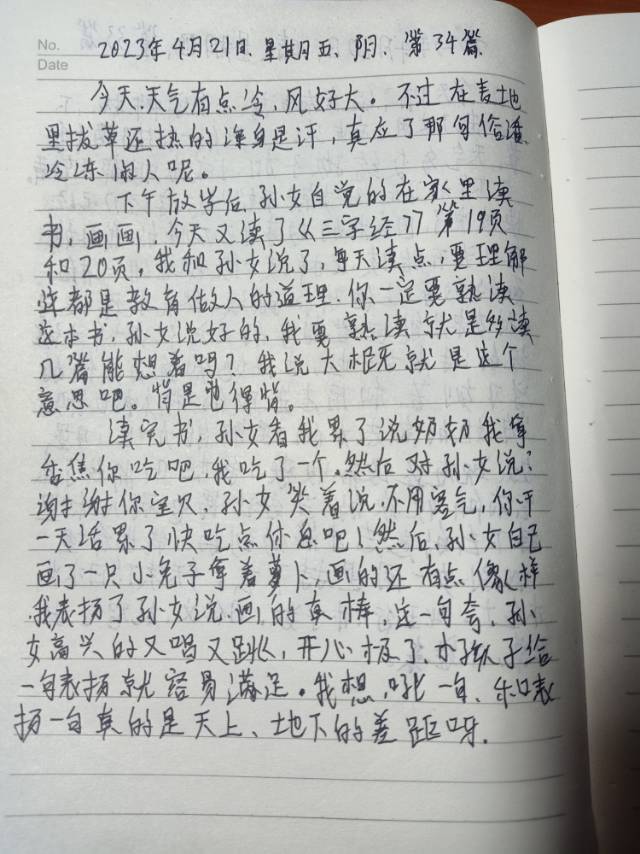 No.
Date
2023年4月21日、星期五、阴、第34篇
今天、天气有点冷、风好大。不过在麦地
里拔草还热的浑身是汗，真应了那句俗语
冷冻的人呢。
下午放学后、孙女自觉的在家里读
书，画画，今天又读了《三字经》第19页
和20页，我和孙女说了，每天读点，要理解
这都是教育做人的道理、你一定要熟读
这本书，孙女说好的，我要熟读就是多读
几篇能想着吗？我说大概死就是这个
意思吧。背是也得背。
读完书，孙女看我累了说奶奶我拿
香焦你吃吧，我吃了一个。然后对孙女说：
谢谢你宝贝，孙女笑着说、不用客气，你干
一天活累了快吃点休息吧！然后、孙女自己
画了一只小兔子拿着萝卜，画的还有点像样
我表扬了孙女说、画的真棒，这一句夸、孙
女高兴的又唱又跳，开心极了、小孩子给
一句表扬就容易满足。我想，吼一句、和表
扬一句真的是天上、地下的差距呀.